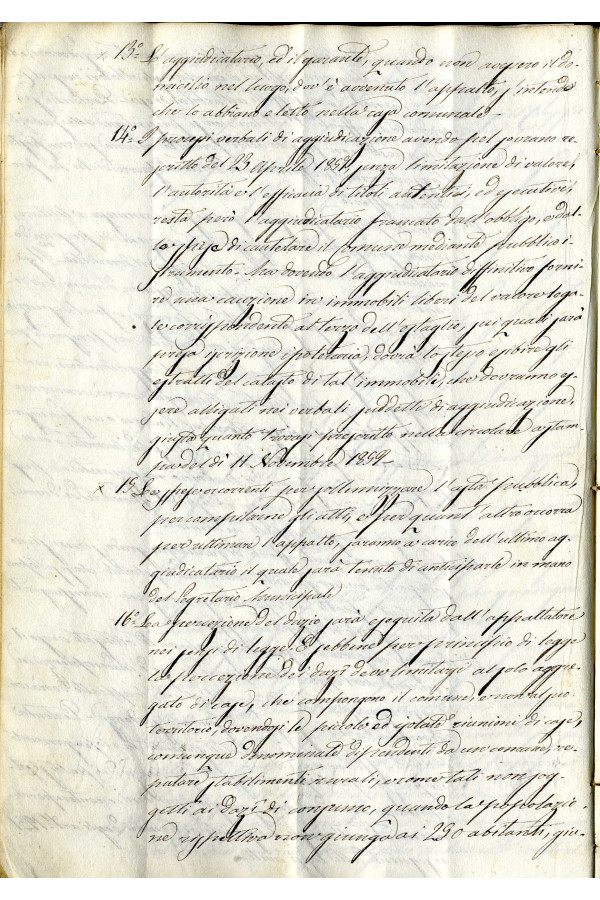 x 13.° L'aggiudicatario, ed il garante, quando non avessero il do-
micilio nel luogo, dov'è avvenuto l'appalto, s'intende
che lo abbiano eletto nella casa comunale.
14.° I processi verbali di aggiudicazione avendo pel sovrano re-
scritto del 23 Aprile 1852, senza limitazione di valore,
l'autorità e l'efficacia di titoli autentici, ed esecutivi,
resta però l'aggiudicatario francato dall'obbligo, e dal-
le spese di cautelare il comune mediante pubblico i-
strumento. Ma dovendo l'aggiudicatario diffinitivo forni-
re una cauzione in immobili liberi del valore lega-
le corrispondente al terzo dell'estaglio, sui quali sarà
presa iscrizione ipotecaria, dovrà lo stesso esibire gli
estratti del catasto di tal'immobili, che dovranno es-
sere alligati nei verbali suddetti di aggiudicazione,
giusta quanto trovasi prescritto nella circolare a stam-
pa del dì 11 Novembre 1852.
x 15. Le spese occorrenti per sollennizzare l'asta pubblica,
per compilarne gli atti, e per quant'altro occorra
per ultimare l'appalto, saranno a carico dell'ultimo ag-
giudicatario il quale sarà tenuto di anticiparle in mano
del Segretario Municipale
16.° La percezione del dazio sarà eseguita dall'appaltatore
nei sensi di legge. E sebbene per principio di legge
la percezione dei dazî deve limitarsi al solo aggre-
gato di case, che compongono il comune, e non al suo
territorio, dovendosi le piccole ed isolate riunioni di case,
comunque denominate dipendenti da un comune, re-
putare stabilimenti rurali, e come tali non sog-
getti ai dazî di consumo, quando la popolazio-
ne rispettiva non giunga ai 250 abitanti, giu-